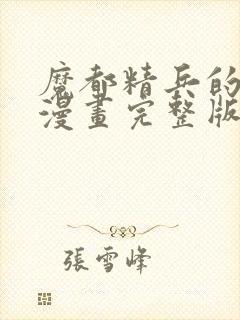 魔都精兵的
漫畫完整版
張雪峰